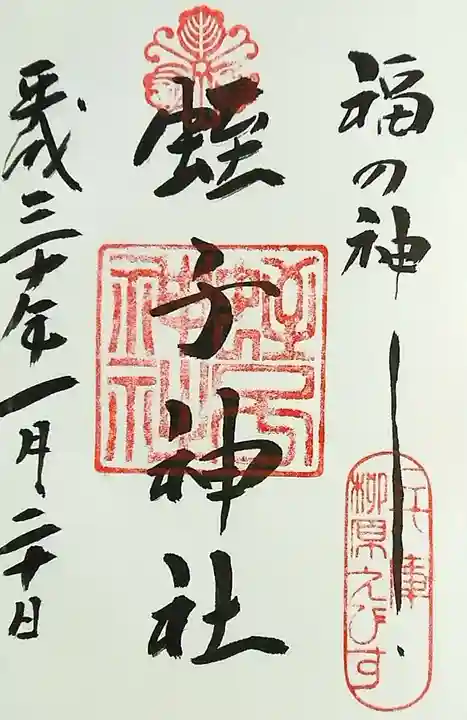 福の神
兵庫
柳原えびす
蛭子神社
蛭子
神社
平成三十年一月二十日